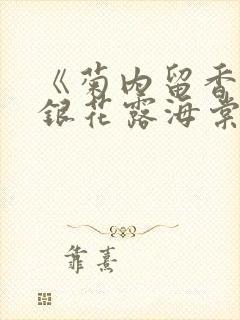 《菊内留香
銀花露海棠
靠熹